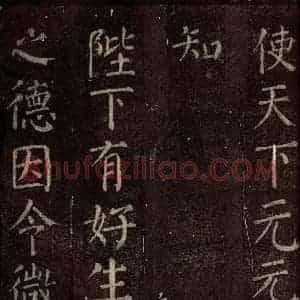 使天下元元
知
陛下有好生
之德因令微
shufaziliao.com